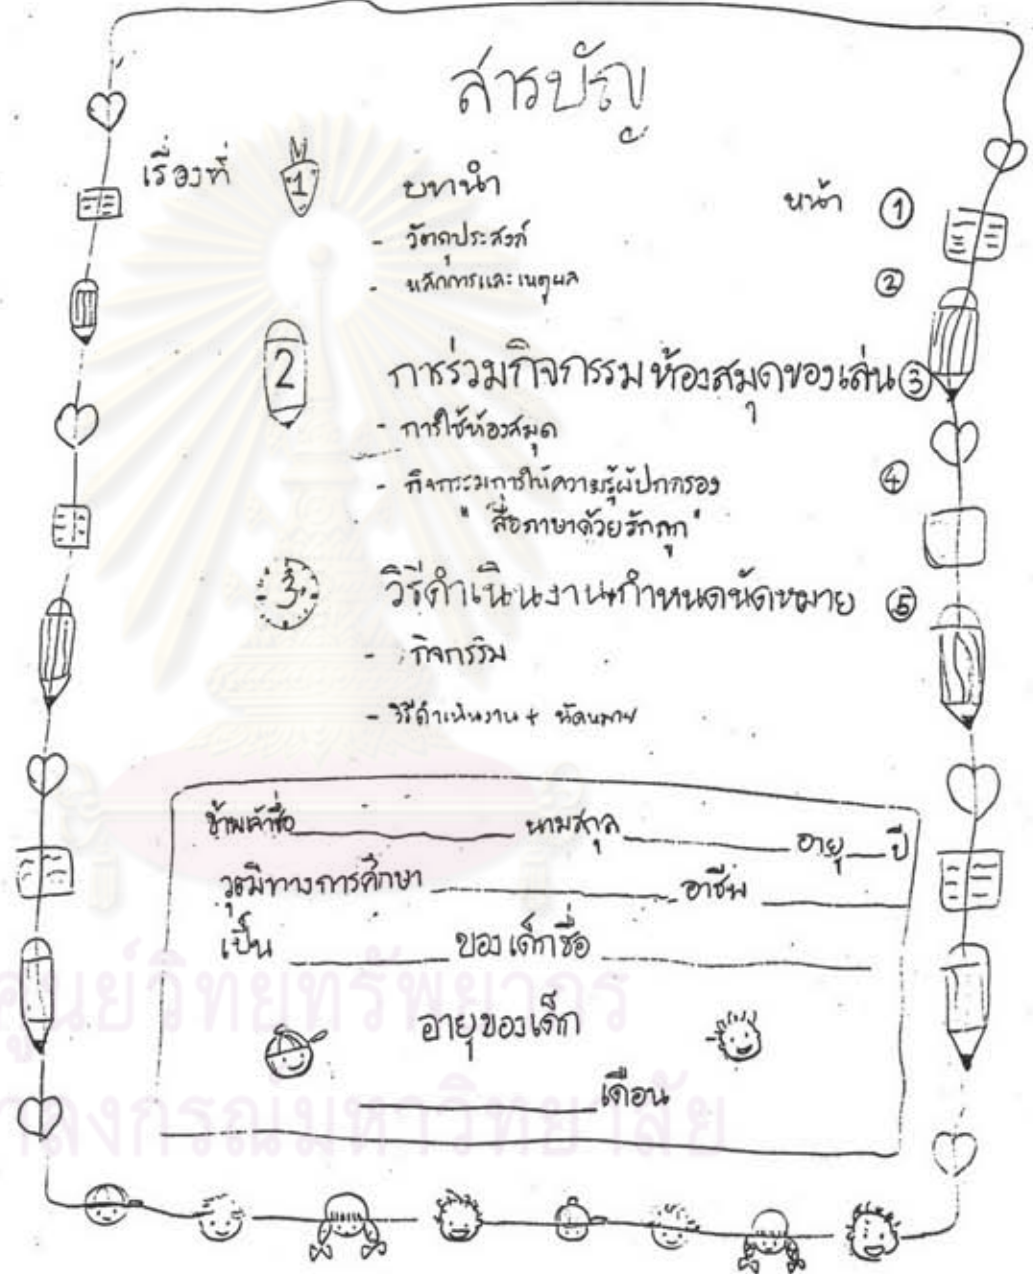 สารบัญ
เรื่องที่ 1 บทนำ หน้า 1
- วัตถุประสงค์
- หลักการและเหตุผล 2
2 การร่วมกิจกรรมห้องสมุดของเล่น 3
- การใช้ห้องสมุด
- กิจกรรมการให้ความรู้ผู้ปกครอง 4
" สื่อภาษาด้วยรักลูก "
3 วิธีดำเนินงาน+กำหนดนัดหมาย 5
- กิจกรรม
- วิธีดำเนินงาน + นัดหมาย
ข้าพเจ้าชื่อ นามสกุล อายุ ปี
วุฒิทางการศึกษา อาชีพ
เป็น ของเด็กชื่อ
อายุของเด็ก
เดือน
ศูนย์วิทยทรัพยากร
จุฬาลงกรณ์มหาวิทยาลัย